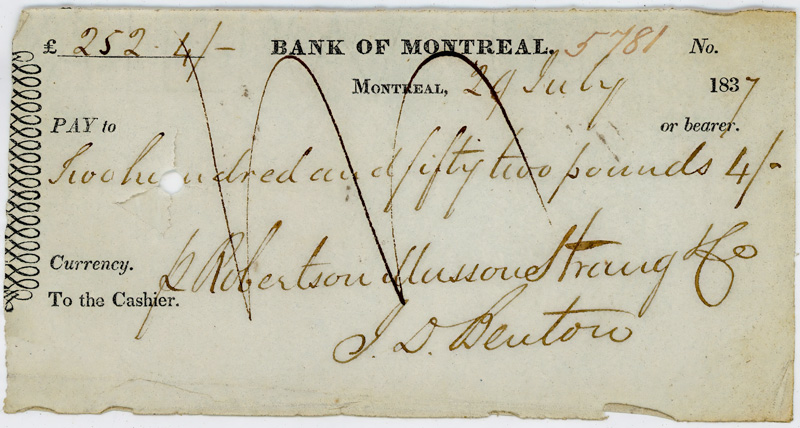 £ 252 . 4/- BANK OF MONTREAL. 5781 No.
MONTREAL, 29 July 1837
PAY to or bearer.
Two hundred and fifty two pounds 4/-
Currency. p Robertson Masson Strang & Co
To the Cashier.
J. D. Benton